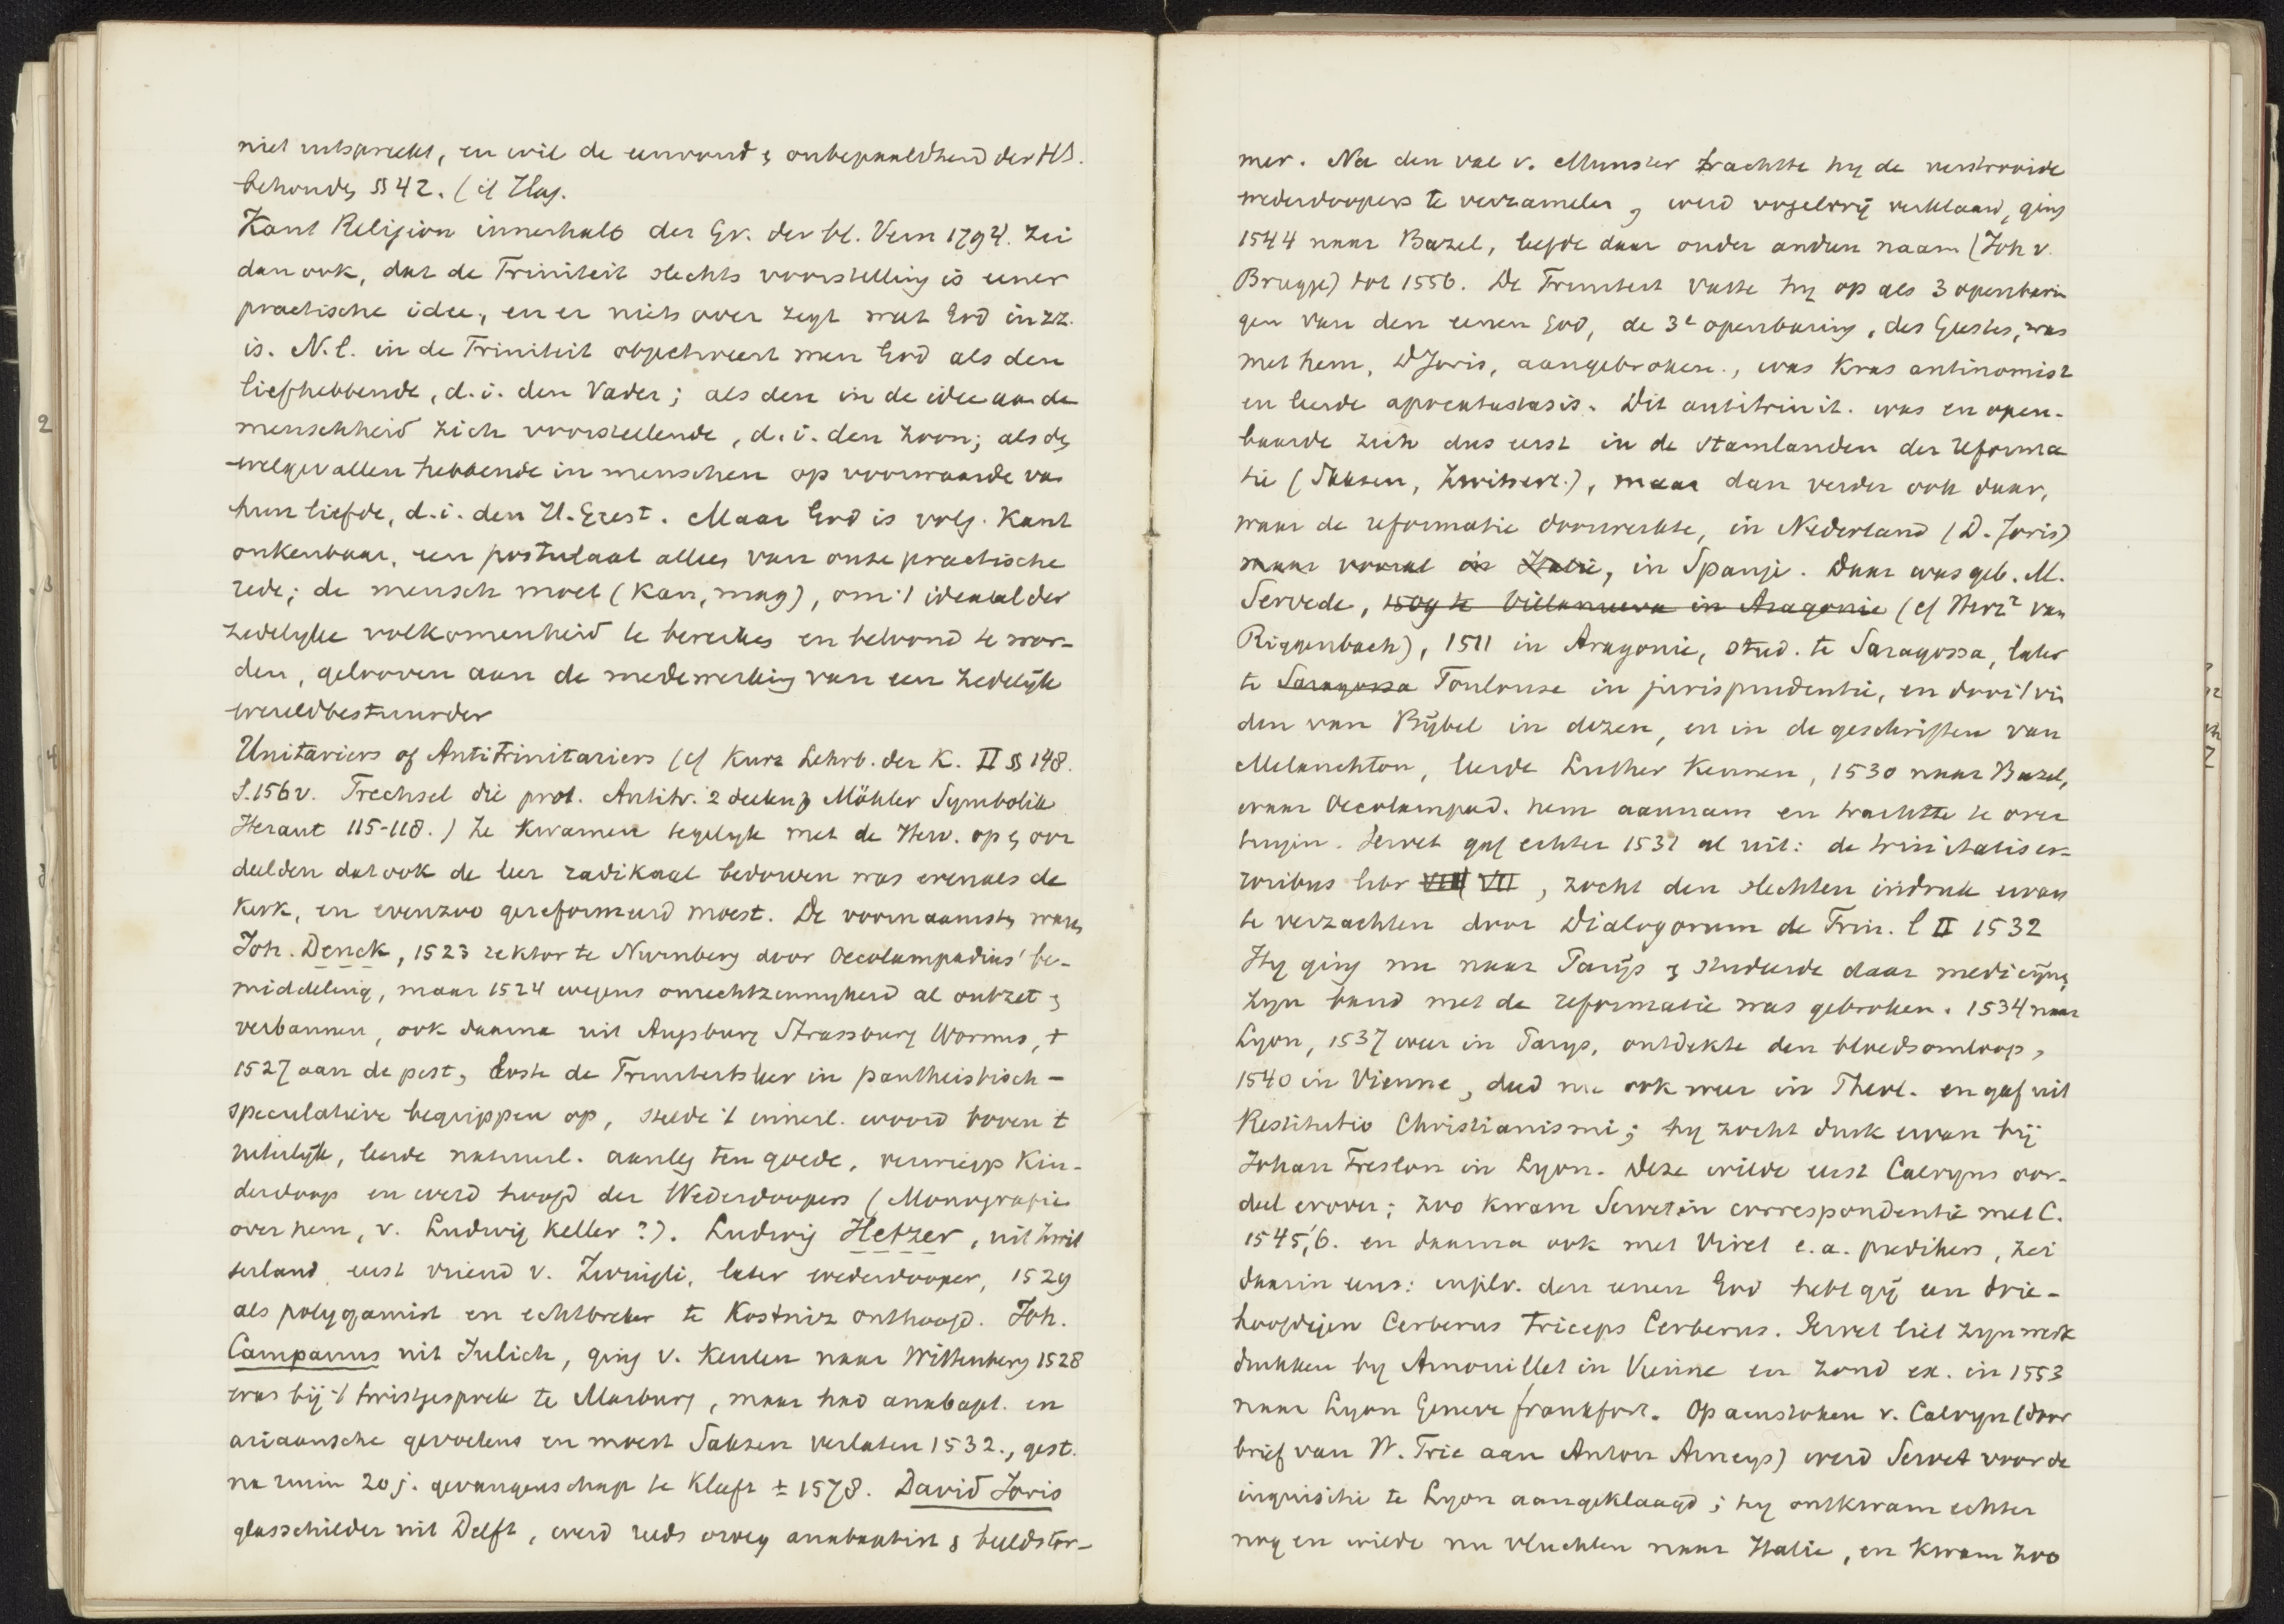 niet uitspreekt, en wil de eenvoud & onbepaaldheid der HS.
behouden §§ 42. (cf Hag.
Kant Religion innerhalb der Gr. der bl. Vern 1794. zei
dan ook, dat de Triniteit slechts voorstelling is eener
practische idee, en er niets over zegt wat God in zz.
is. N.l. in de Triniteit objectiveert men God als den
liefhebbende, d.i. den Vader; als den in de idee aan de
menschheid zich voorstellende, d.i. den Zoon; als den
welgevallen hebbende in menschen op voorwaarde van
hun liefde, d.i. den H. Geest. Maar God is volg. Kant
onkenbaar, een postulaat alleen van onze practische
rede; de mensch moet (kan, mag), om 't ideaal der
zedelyke volkomenheid te bereiken en beloond te wor-
den, gelooven aan de medewerking van een zedelijk
wereldbestuurder
Unitariers of AntiTrinitariers (cf Kurz Lehrb. der K. II §§ 148.
S. 156 v. Trechsel die prot. Antitr. 2 deelen & Möhler Symbolik
Heraut 115-118.) Ze kwamen tegelyk met de Herv. op & oor
deelden dat ook de leer radikaal bedorven was evenals de
kerk, en evenzoo gereformeerd moest. De voornaamsten waren
Joh. Denck, 1523 rektor te Nurnberg door Oecolampadius' be-
middeling, maar 1524 wegens onrechtzinnigheid al ontzet &
verbannen, ook daarna uit Augsburg Strassburg Worms, †
1527 aan de pest, loste de Triniteitsleer in pantheistisch-
speculatieve begrippen op, stelde 't innerl. woord boven 't
uiterlijk, leerde natuurl. aanleg ten goede, verwierp kin-
derdoop en werd hoofd der Wederdoopers (Monografie
over hem, v. Ludwig Keller?). Ludwig Hetzer, uit Zwit
serland eerst vriend v. Zwingli, later wederdooper, 1529
als polygamist en echtbreker te Kostniz onthoofd. Joh.
Campanus uit Julich, ging v. Keulen naar Wittenberg 1528
was bij 't twistgesprek te Marburg, maar had anabapt. en
ariaansche gevoelens en moest Saksen verlaten 1532., gest.
na ruim 20 j. gevangenschap te Kleef ± 1578. David Joris
glasschilder uit Delft, werd reeds vroeg anabaptist & beeldstor-
mer. Na den val v. Munster trachtte hy de verstrooide
wederdoopers te verzamelen, werd vogelvrij verklaard, ging
1544 naar Bazel, leefde daar onder andren naam (Joh v.
Brugge) tot 1556. De Triniteit vatte hy op als 3 openbarin
gen van den eenen God, de 3e openbaring, des Geestes, was
met hem, D Joris, aangebroken., was kras antinomist
en leerde apocatastasis. Dit antitrinit. was en open-
baarde zich dus eerst in de stamlanden der reforma
tie (Saksen, Zwitserl.), maar dan verder ook daar,
waar de reformatie doorwerkte, in Nederland (D. Joris)
maar vooral in Italie, in Spanje. Daar was geb. M.
Servede, 1509 te Villanueva in Aragonie (cf Herz² van
Riggenbach), 1511 in Aragonie, stud. te Saragossa, later
te Saragossa Toulouse in jurisprudentie, en door 't vin
den van Bijbel in dezen, en in de geschriften van
Melanchton, leerde Luther kennen, 1530 naar Bazel,
waar Oecolampad. hem aannam en trachtte te over
tuigen. Servet gaf echter 1531 al uit: de trinitatis er-
roribus libr VIII VII, zocht den slechten indruk ervan
te verzachten door Dialogorum de Trin. l II 1532
Hy ging nu naar Parijs & studeerde daar medicijnen
zyn band met de reformatie was gebroken. 1534 naar
Lyon, 1537 weer in Parys, ontdekte den bloedsomloop,
1540 in Vienne, deed nu ook weer in Theol. en gaf uit
Restitutio Christianismi; hy zocht druk ervan bij
Johan Frellon in Lyon. Deze wilde eerst Calvyns oor-
deel erover; zoo kwam Servet in correspondentie met C.
1545/6. en daarna ook met Viret e.a. predikers, zei
daarin eens: in plv. den eenen God hebt gij een drie-
hoofdigen Cerberus triceps Cerberus. Servet liet zyn werk
drukken by Arnouillet in Vienne en zond ex. in 1553
naar Lyon Geneve frankfort. Op aanstoken v. Calvyn (door
brief van W. Trie aan Anton Arneys) werd Servet voor de
inquisitie te Lyon aangeklaagd; hy ontkwam echter
nog en wilde nu vluchten naar Italie, en kwam zoo